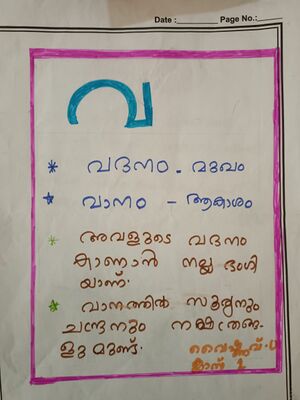 Date : ________ Page No.:______
വ
* വദനം - മുഖം
* വാനം - ആകാശം
* അവളുടെ വദനം
കാണാൻ നല്ല ഭംഗി
യാണ്.
* വാനത്തിൽ സൂര്യനും
ചന്ദ്രനും നക്ഷത്രങ്ങ-
ളുമുണ്ട്.
വൈഷ്ണവ്. U
ക്ലാസ് 2